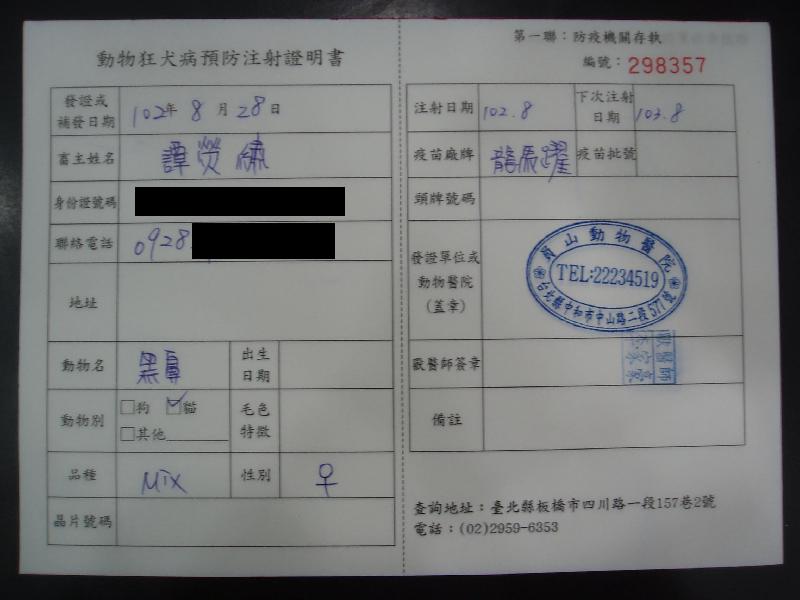 動物狂犬病預防注射證明書
發證或
補發日期
102年 8 月 28 日
畜主姓名
譚熒繡
身份證號碼
聯絡電話
0928
地址
動物名
黑鼻
出生
日期
動物別
□狗 ☑貓
□其他
毛色
特徵
品種
MIX
性別
♀
晶片號碼
第一聯：防疫機關存執
編號：298357
注射日期
102.8
下次注射
日期
103.8
疫苗廠牌
龍馬躍
疫苗批號
頸牌號碼
發證單位或
動物醫院
(蓋章)
員山動物醫院
TEL:22234519
台北縣中和市中山路二段577號
獸醫師簽章
獸醫師
備註
查詢地址：臺北縣板橋市四川路一段157巷2號
電話：(02)2959-6353